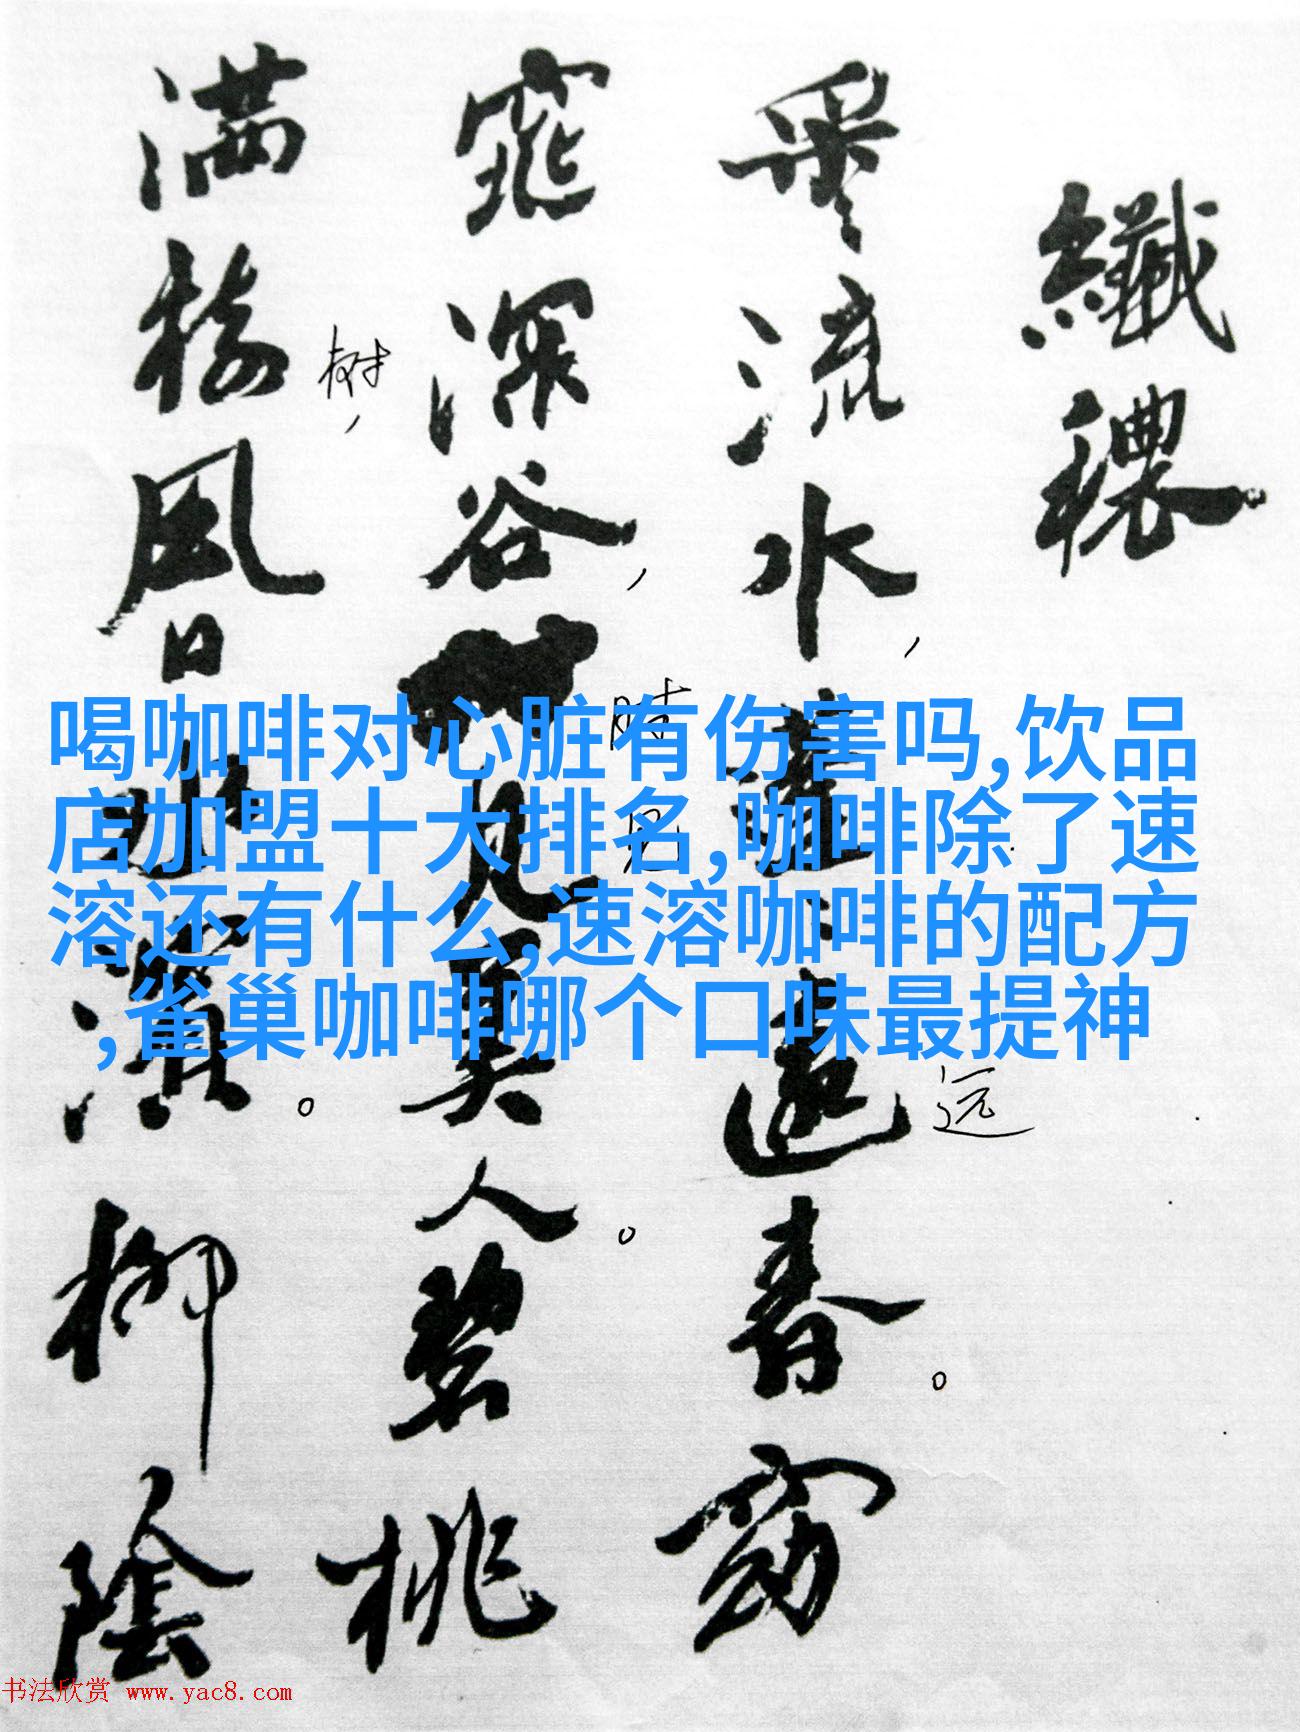 纖穠
采々流水,蓬々遠春。窈
远
窕深谷,見美人。碧桃
时
见
满樹,風日水濱。柳陰
树
喝咖啡对心脏有伤害吗,饮品
店加盟十大排名,咖啡除了速
溶还有什么,速溶咖啡的配方
,雀巢咖啡哪个口味最提神
书法欣赏 www.yac8.com